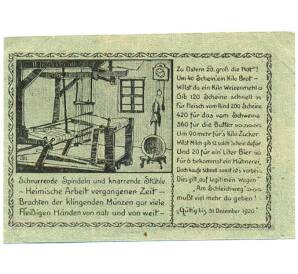 Zu Ostern 20, groß die Not!
Um 40 Schein'ein Kilo Brot –
Willst du ein Kilo Weizenmehl
Gib 120 Scheine schnell n
für Fleisch vom Rind 200 Scheine
420 für das vom Schweine
360 für die Butter
Um 90 mehr für's Kilo Zucker.
Willst Milch gib 12 Scheine
Und 20 für ein Liter Bier so
Für 6 bekommst ein Hühnerei,
Doch kaufe schnell sonst ist's vorbei.
Dies gilt auf legitimen Wegen –
Am Schleichweg
mußt viel mehr du geben!
Gültig bis 31 Dezember 1920
Schnurrende Spindeln und knarrende Stühle
– Heimische Arbeit vergangener Zeit –
Brachten der klingenden Münzen gar viele
Fleißigen Händen von nah und von weit –